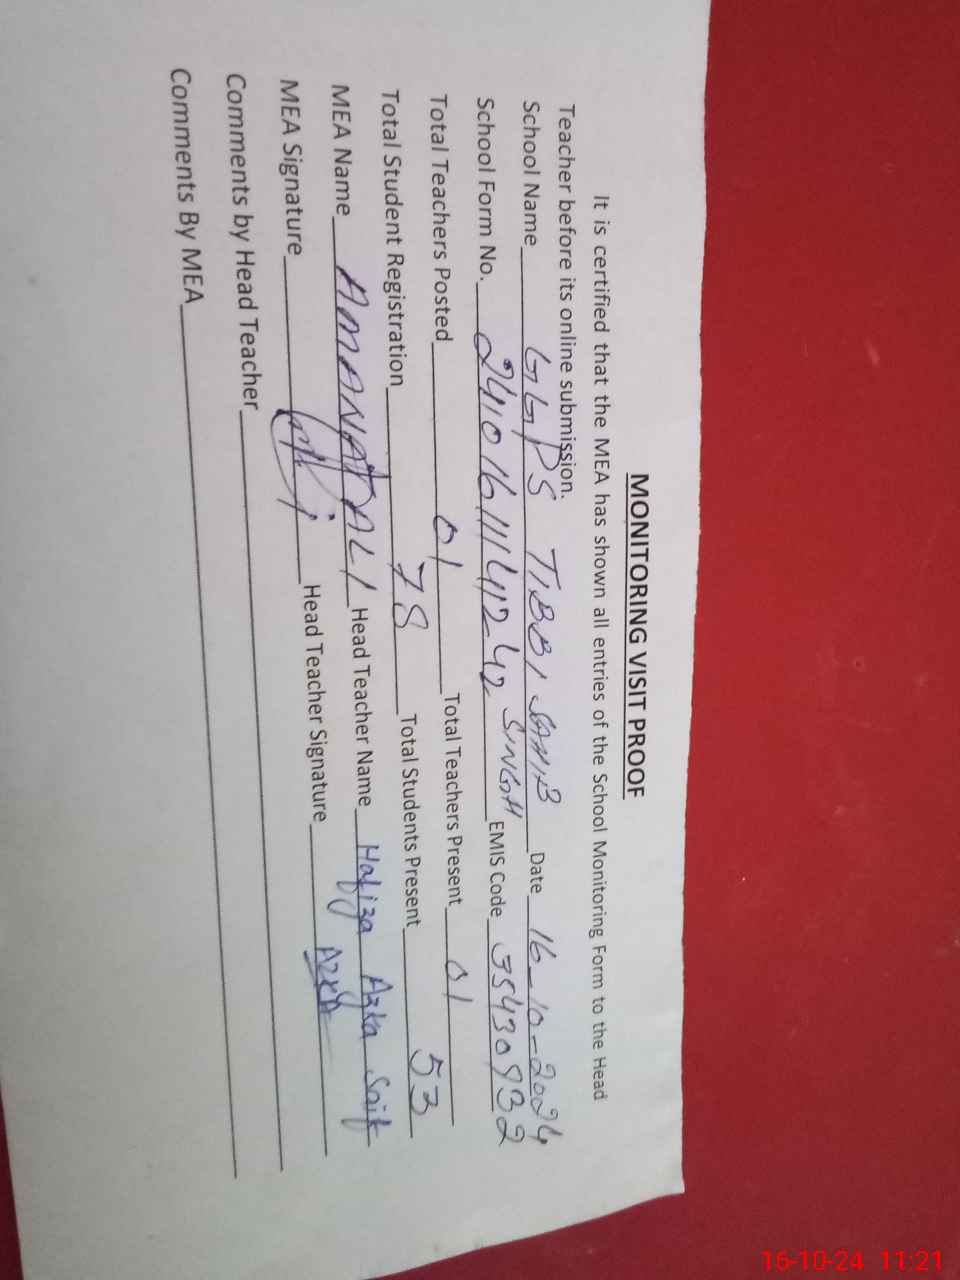 MONITORING VISIT PROOF
It is certified that the MEA has shown all entries of the School Monitoring Form to the Head
Teacher before its online submission.
School Name GGPS TIBBI SAHIB SINGH Date 16-10-2024
School Form No. EMIS Code
Total Teachers Posted 01 Total Teachers Present 01
Total Student Registration 78 Total Students Present 53
MEA Name AMANAT ALI Head Teacher Name Hafiza Azka Saif
MEA Signature Head Teacher Signature Azka
Comments by Head Teacher
Comments By MEA
16-10-24 11:21